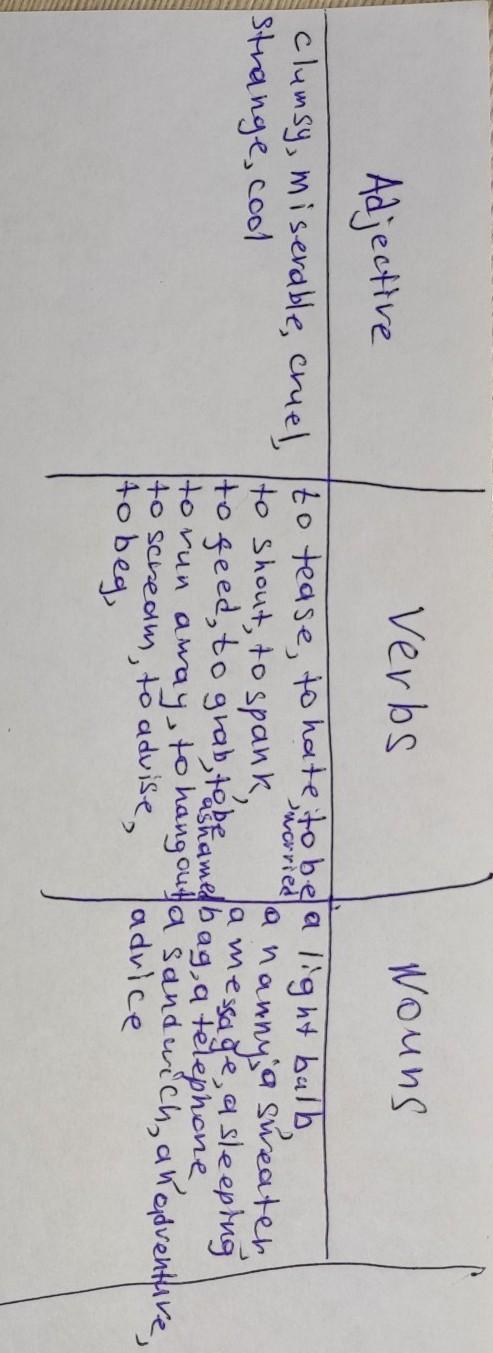 Adjective
clumsy, miserable, cruel,
strange, cool
Verbs
to tease, to hate, to be
worried,
to shout, to spank,
to feed, to grab, to be
ashamed
to run away, to hang out
to scream, to advise,
to beg,
Nouns
a light bulb,
a nanny, a sweater
a message, a sleeping
bag, a telephone
a sandwich, an adventure,
advice